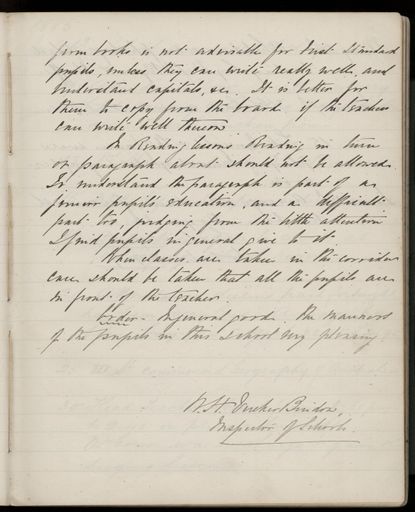 from books is not advisable for First Standard
pupils, unless they can write really well, and
understand capitals, &c. It is better for
them to copy from the board if the teachers
can write well thereon.
In Reading lessons Reading in turn
or paragraph about should not be allowed.
To understand the paragraph is part of a
junior pupil's education, and a difficult
part too, judging from the little attention
I find pupils in general give to it.
When classes are taken in the corridor
care should be taken that all the pupils are
in front of the teacher.
Order - In general good. The manners
of the pupils in this school very pleasing
W. H. Bindon,
Inspector of Schools.